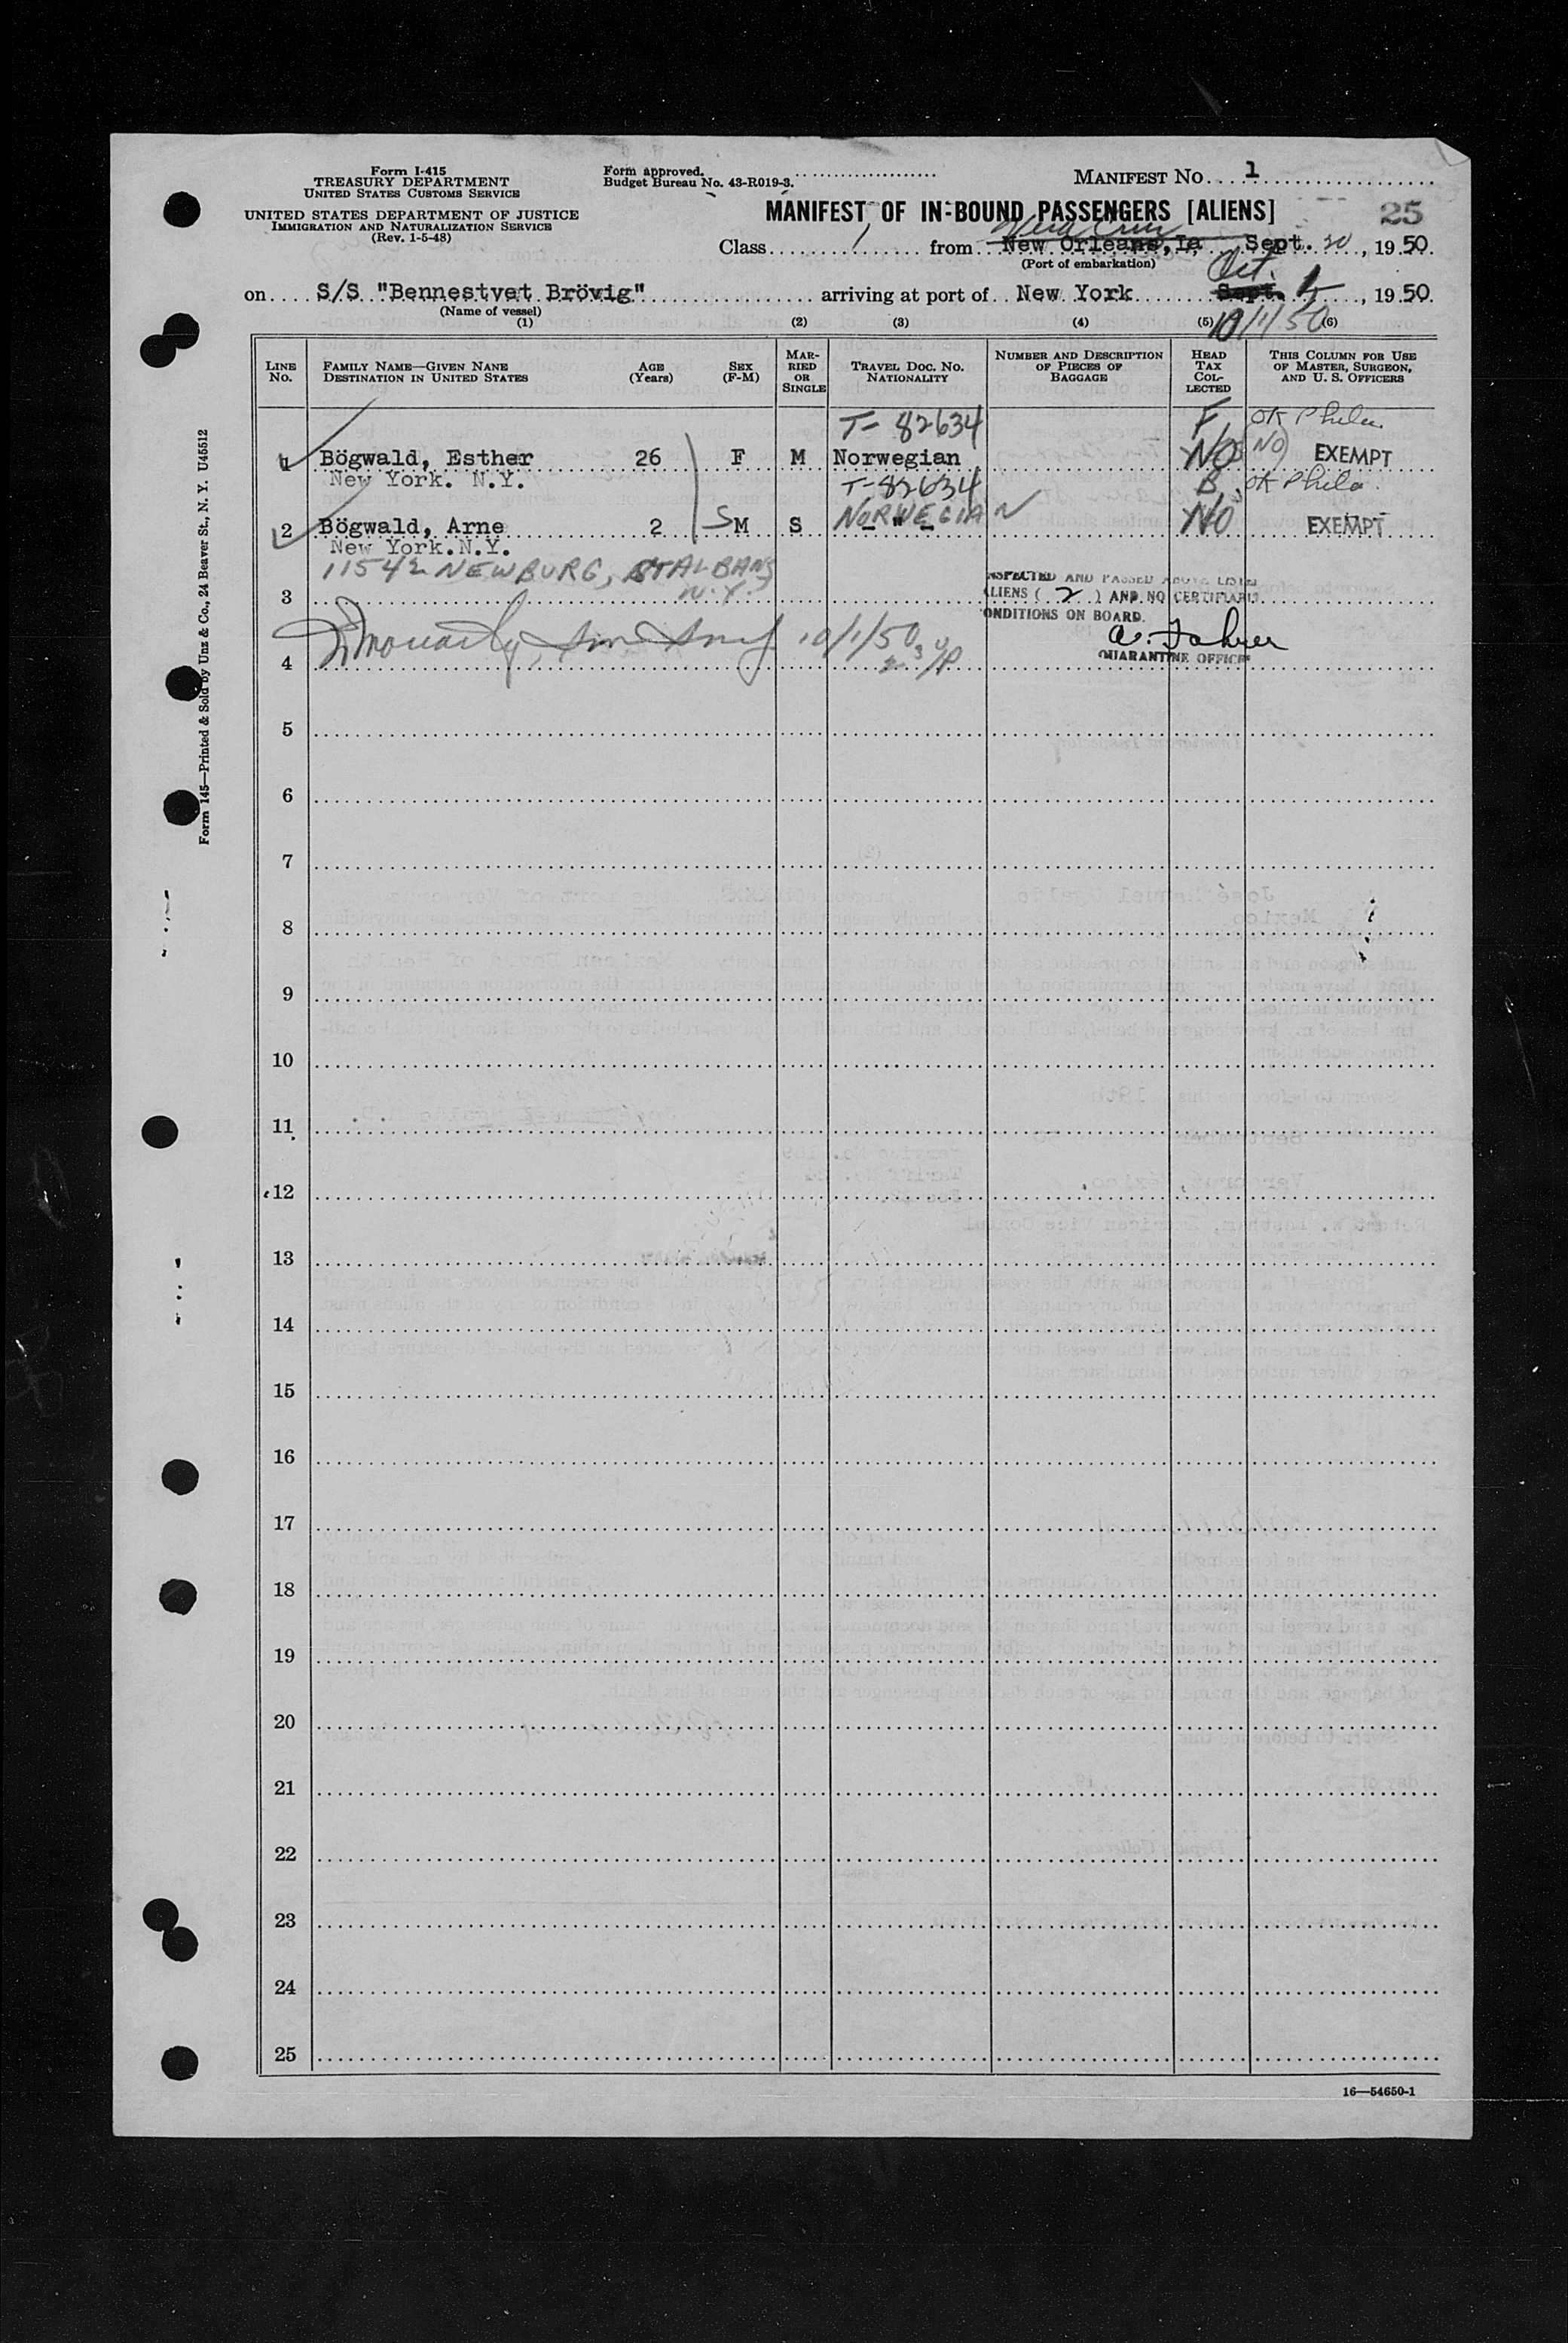 Form I-415
TREASURY DEPARTMENT
UNITED STATES CUSTOMS SERVICE
UNITED STATES DEPARTMENT OF JUSTICE
IMMIGRATION AND NATURALIZATION SERVICE
(Rev. 1-5-48)
Form approved.
Budget Bureau No. 43-R019-3.
MANIFEST NO. 1
MANIFEST OF IN-BOUND PASSENGERS [ALIENS]
25
Vera Cruz
Class from New Orleans, La Sept. 20, 1950.
(Port of embarkation)
Oct.
on S/S "Bennestvet Brövig" arriving at port of New York Sept. 1, 1950.
(Name of vessel)
10/1/50
(1) (2) (3) (4) (5) (6)
LINE NO.
FAMILY NAME—GIVEN NANE
DESTINATION IN UNITED STATES
AGE (Years)
SEX (F-M)
MARRIED OR SINGLE
TRAVEL DOC. NO. NATIONALITY
NUMBER AND DESCRIPTION OF PIECES OF BAGGAGE
HEAD TAX COLLECTED
THIS COLUMN FOR USE OF MASTER, SURGEON, AND U. S. OFFICERS
T- 82634 F OK Phila.
1 Bögwald, Esther 26 F M Norwegian NO NO EXEMPT
New York. N.Y. T-82634 B OK Phila.
2 Bögwald, Arne 2 S M S - " - NORWEGIAN NO EXEMPT
New York.N.Y.
11542 NEWBURG, ST ALBANS
N.Y.
INSPECTED AND PASSED ABOVE LISTED
3 ALIENS ( 2 ) AND NO CERTIFIABLE
CONDITIONS ON BOARD.
10/1/50
A. Fahrer
4 QUARANTINE OFFICER
5
6
7
8
9
10
11
12
13
14
15
16
17
18
19
20
21
22
23
24
25
16—54650-1
Form 145—Printed & Sold by Unz & Co., 24 Beaver St., N. Y. U45512